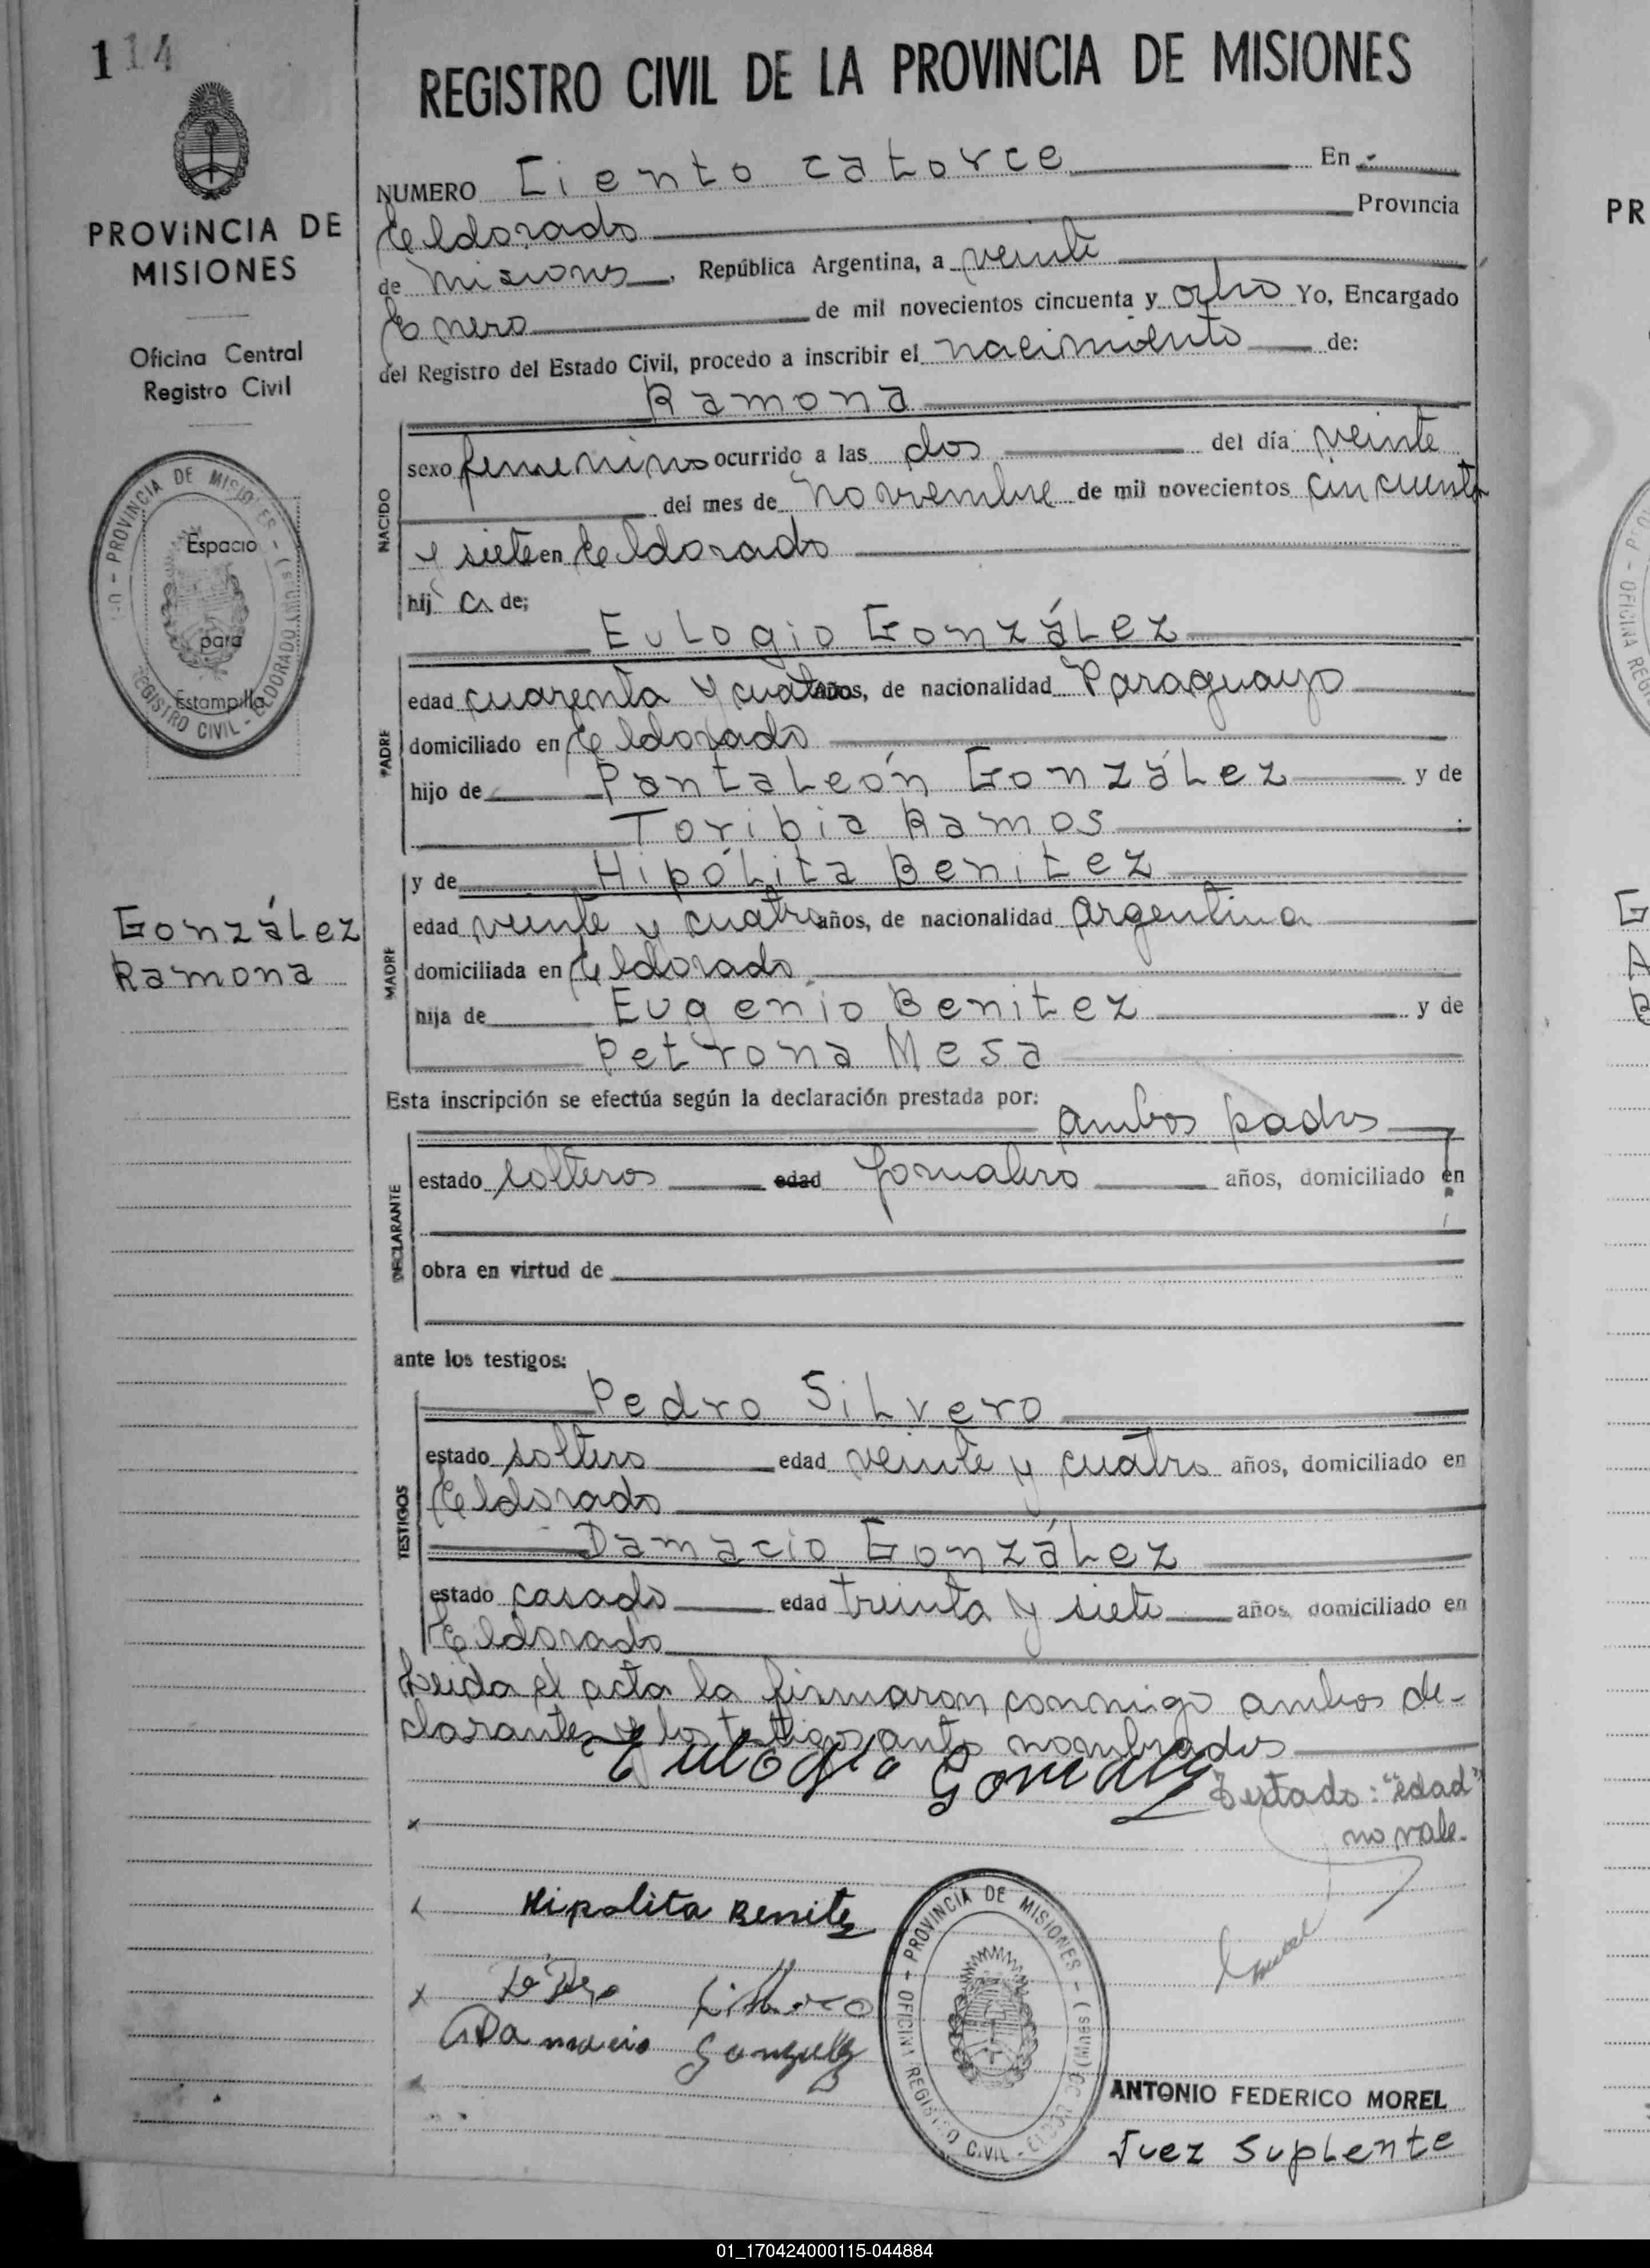 114
REGISTRO CIVIL DE LA PROVINCIA DE MISIONES
NUMERO Ciento catorce En
Eldorado Provincia
de Misiones, República Argentina, a veinte
Enero de mil novecientos cincuenta y ocho Yo, Encargado
del Registro del Estado Civil, procedo a inscribir el nacimiento de:
Ramona
NACIDO
sexo femenino ocurrido a las dos del día veinte
del mes de noviembre de mil novecientos cincuenta
y siete en Eldorado
hij a de;
Eulogio González
PADRE
edad cuarenta y cuatro años, de nacionalidad Paraguayo
domiciliado en Eldorado
hijo de Pantaleón González y de
Toribia Ramos
y de Hipólita Benitez
MADRE
edad veinte y cuatro años, de nacionalidad Argentina
domiciliada en Eldorado
hija de Eugenio Benitez y de
Petrona Mesa
Esta inscripción se efectúa según la declaración prestada por:
ambos padres
DECLARANTE
estado solteros edad Jornalero años, domiciliado en
obra en virtud de
ante los testigos:
Pedro Silvero
TESTIGOS
estado soltero edad veinte y cuatro años, domiciliado en
Eldorado
Damacio González
estado casado edad treinta y siete años, domiciliado en
Eldorado
Leida el acta la firmaron conmigo ambos de-
clarantes y los testigos antes nombrados
Eulogio Gonzalez
Testado: "edad"
no vale.
Hipolita Benitez
Pedro Silvero
Damacio Gonzalez
PROVINCIA DE MISIONES - OFICINA REGISTRO CIVIL
ANTONIO FEDERICO MOREL
Juez Suplente
PROVINCIA DE
MISIONES
Oficina Central
Registro Civil
PROVINCIA DE MISIONES - (MSUMY) - REGISTRO CIVIL - ELDORADO
Espacio
para
Estampilla
González
Ramona
PR
01_170424000115-044884